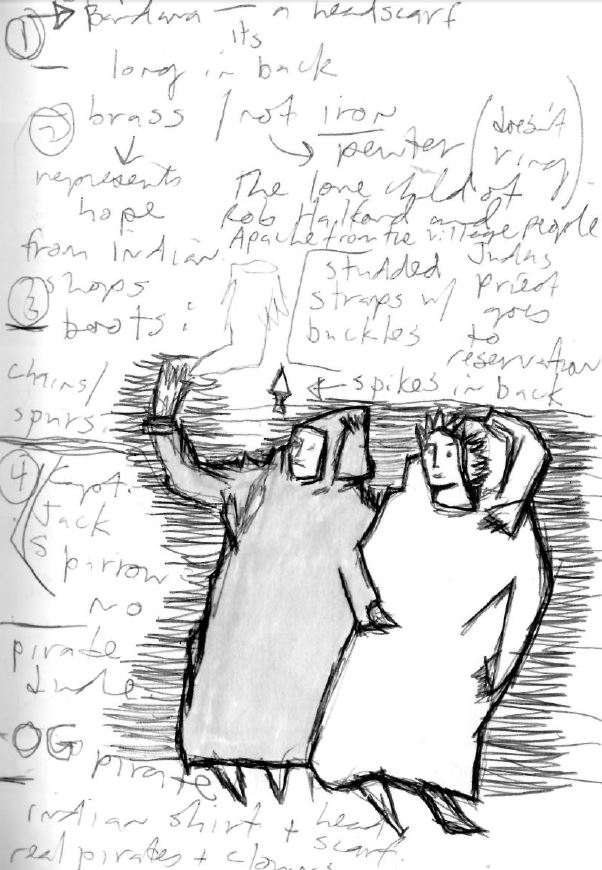 1 → Bandana — a headscarf
its
— long in back
2 brass / not iron
pewter (doesn't ring)
represents
hope
from Indian
shops
The love child of
Rob Halford and
Apache from the village people
3 boots:
studded
straps w/
buckles
Judas
priest
goes
to
reservation
chains/
spurs:
← spikes in back
4 Kapt.
Jack
Sparrow
no
pirate
dude.
OG
pirate
indian shirt + head
scarf.
real pirates + clowns